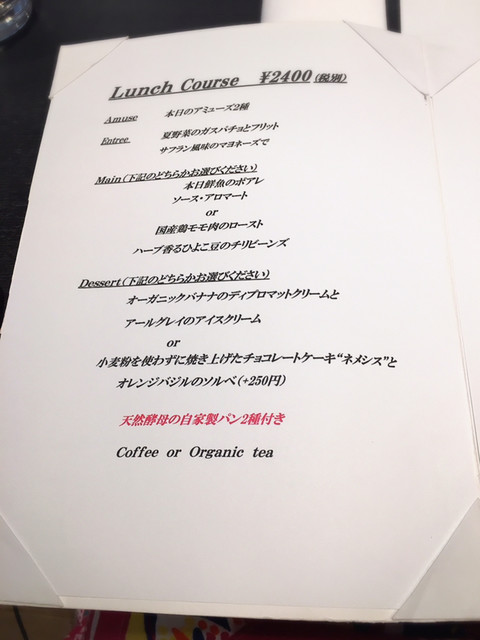 Lunch Course ¥2400(税別)
Amuse 本日のアミューズ2種
Entree 夏野菜のガスパチョとフリット
サフラン風味のマヨネーズで
Main(下記のどちらかお選びください)
本日鮮魚のポアレ
ソース・アロマート
or
国産鶏モモ肉のロースト
ハーブ香るひよこ豆のチリビーンズ
Dessert(下記のどちらかお選びください)
オーガニックバナナのディプロマットクリームと
アールグレイのアイスクリーム
or
小麦粉を使わずに焼き上げたチョコレートケーキ“ネメシス”と
オレンジバジルのソルベ(+250円)
天然酵母の自家製パン2種付き
Coffee or Organic tea